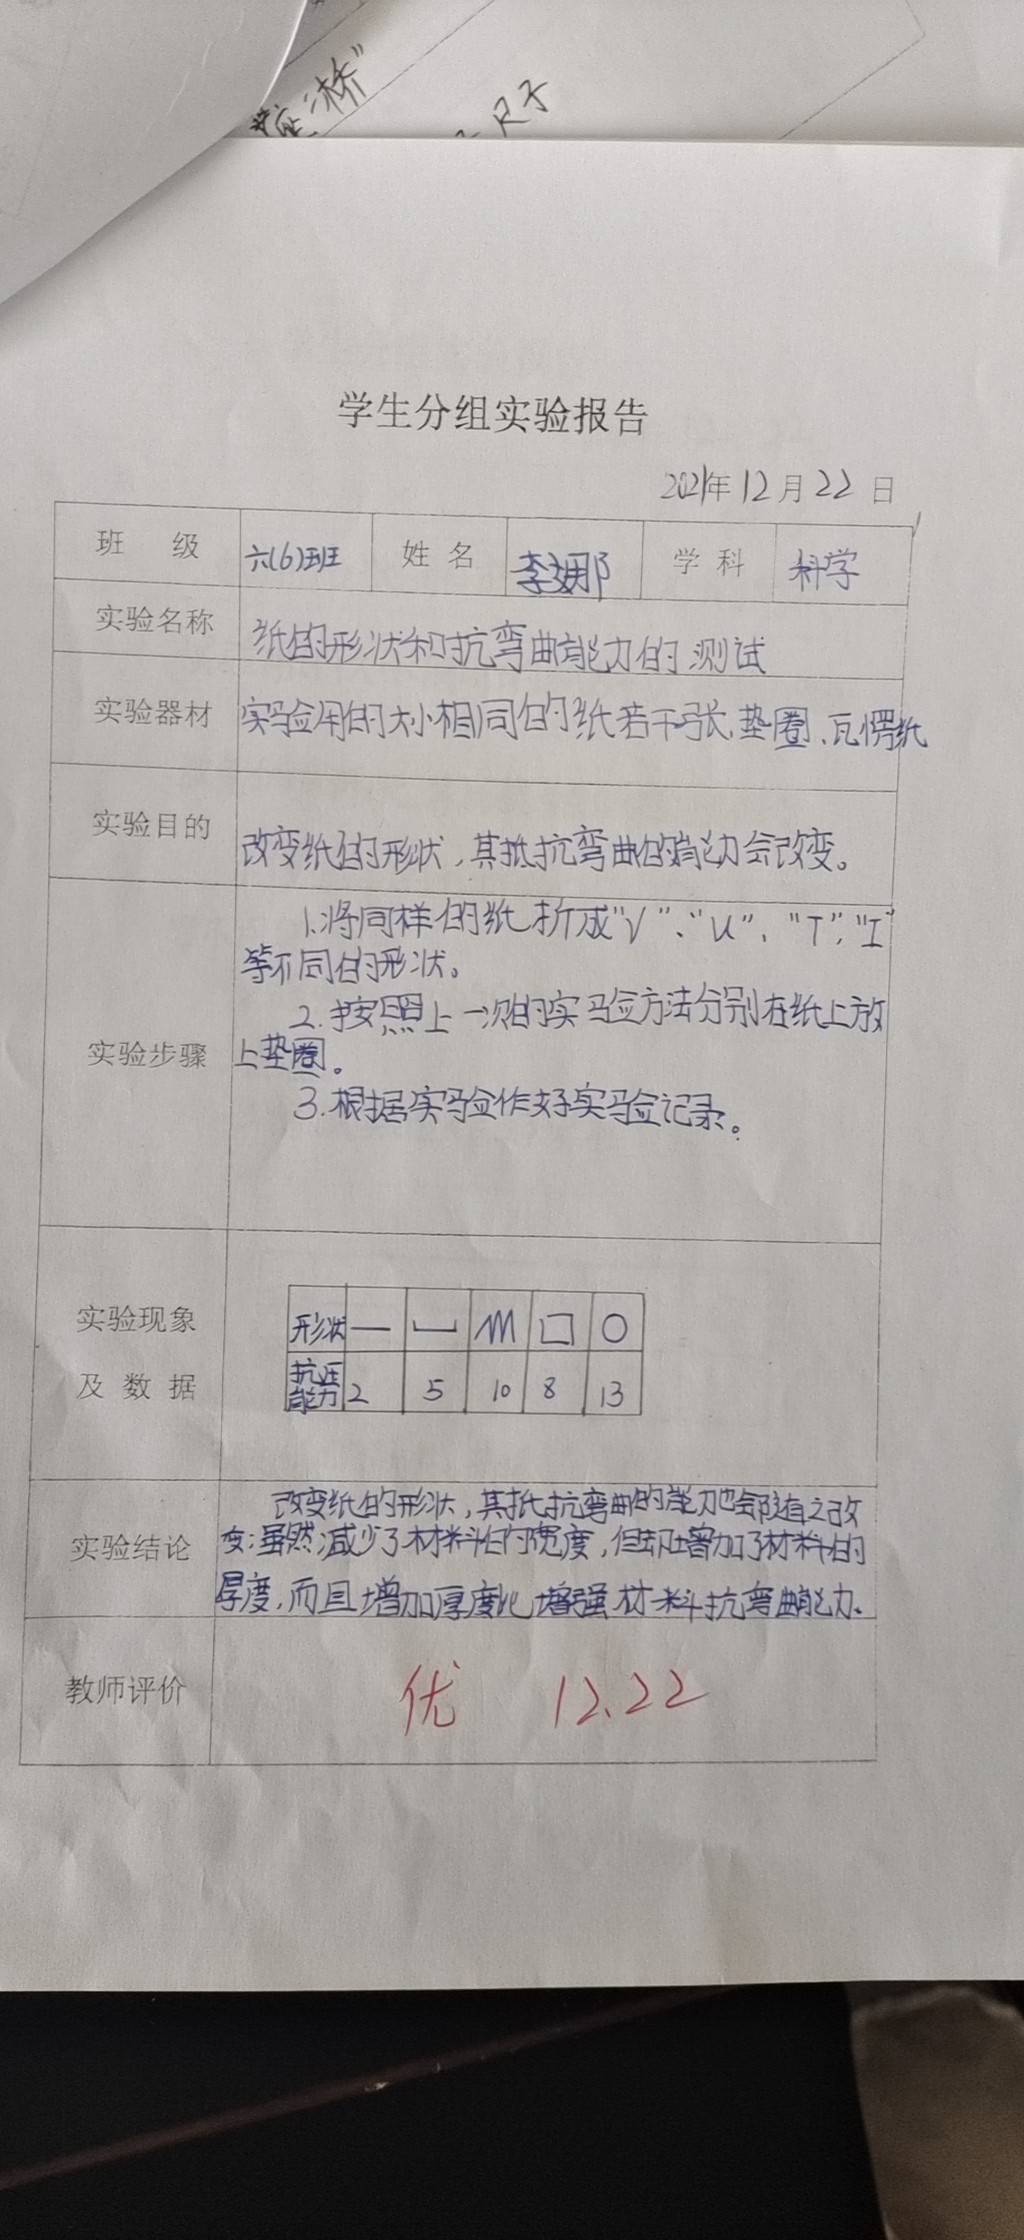 桥”
尺子
学生分组实验报告
2021年12月22日
班 级 六(6)班 姓名 李娜 学科 科学
实验名称 纸的形状和抗弯曲能力的测试
实验器材 实验用的大小相同的纸若干张、垫圈、瓦楞纸
实验目的 改变纸的形状，其抵抗弯曲的能力会改变。
1.将同样的纸折成“V”、“U”、“T”、“工”
等不同的形状。
2.按照上一次的实验方法分别在纸上放
实验步骤 上垫圈。
3.根据实验作好实验记录。
实验现象
及数据
形状 — ⎵ M 口 ○
抗压
能力 2 5 10 8 13
改变纸的形状，其抵抗弯曲的能力也会随之改
实验结论 变；虽然减少了材料的宽度，但却增加了材料的
厚度，而且增加厚度比增强材料抗弯曲能力。
教师评价 优 12.22